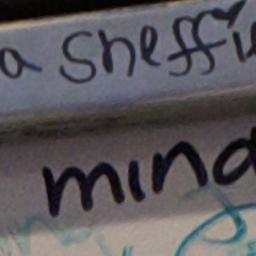 a sheffi
mind